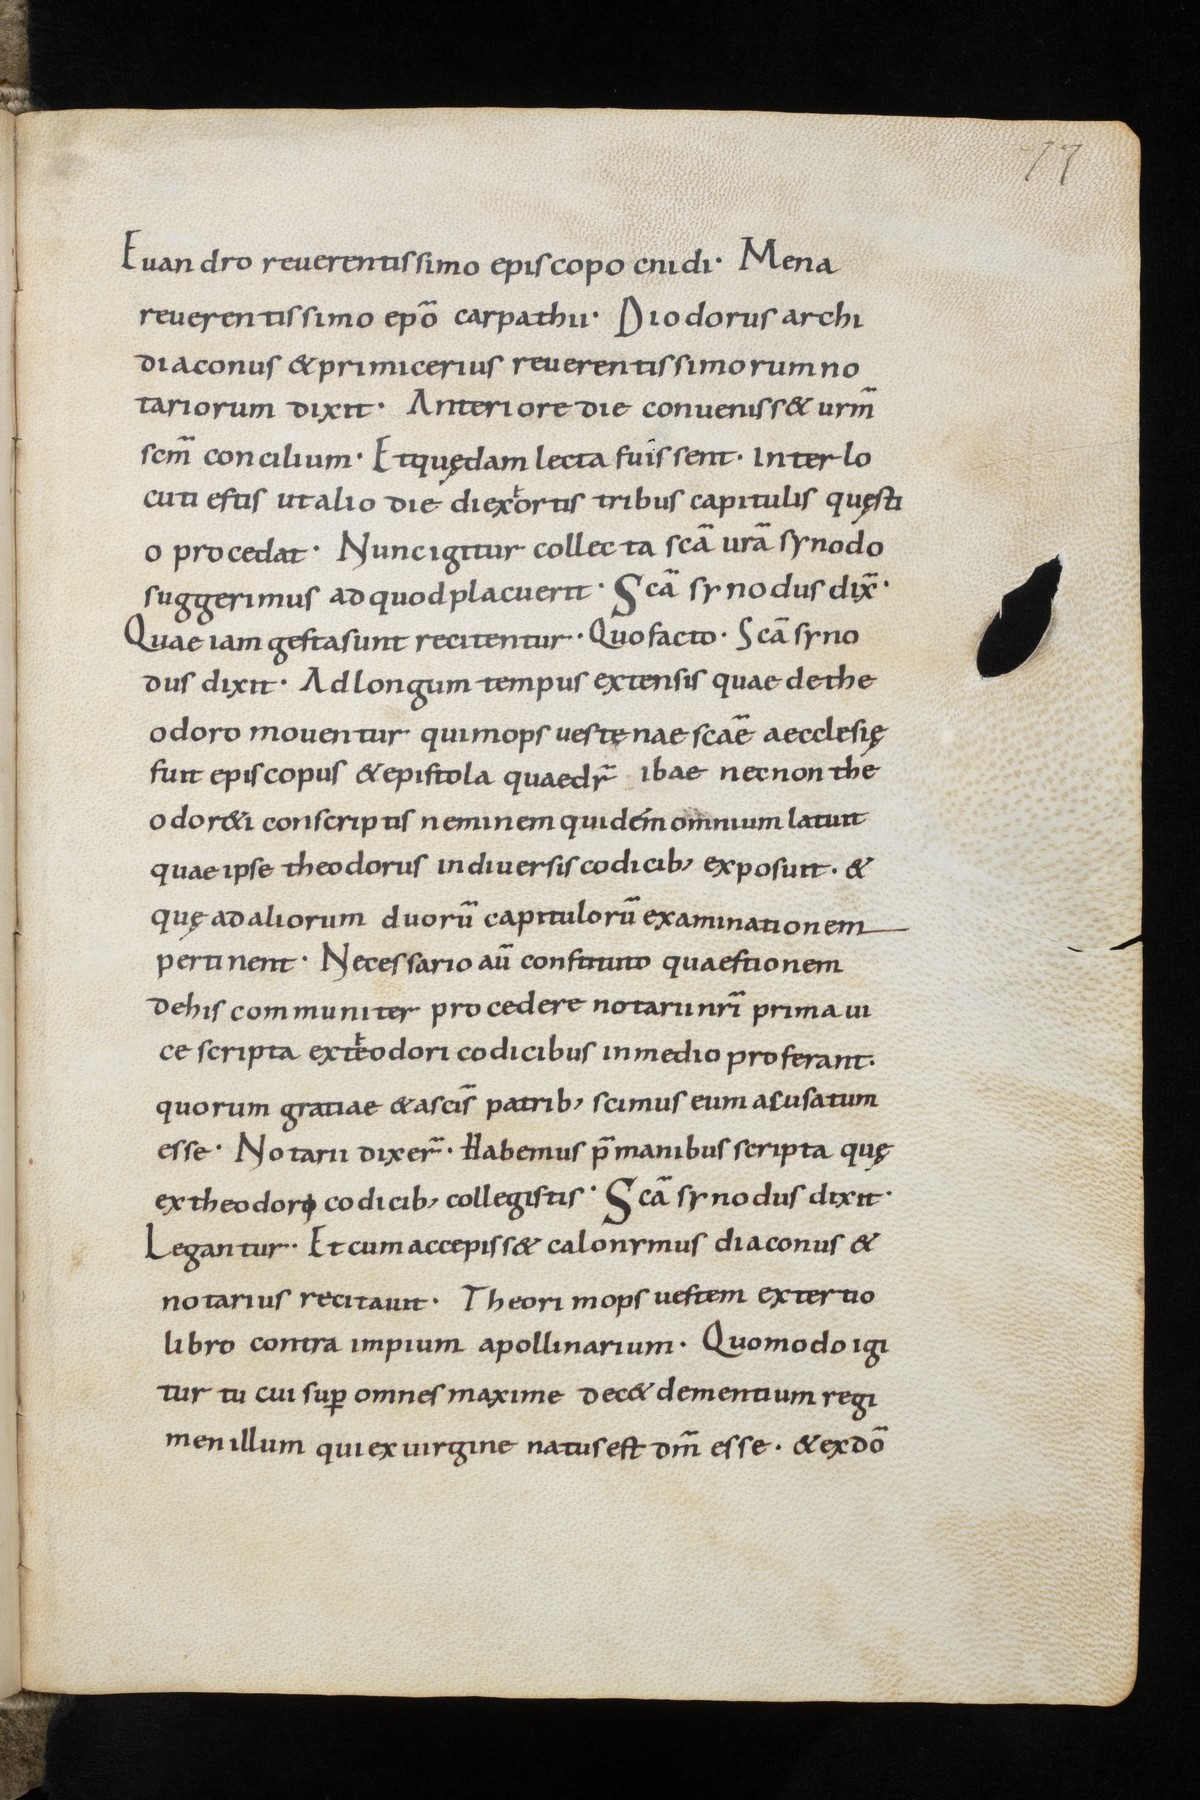 77
Euandro reuerentissimo episcopo cnidi· Mena
reuerentissimo epo̅ carpathii· Diodorus archi
diaconus & primicerius reuerentissimorum no
tariorum dixit· Anteriore die conueniss& urm̅
scm̅ concilium· Et quędam lecta fuissent· Inter lo
cuti estis ut alio die die exortis tribus capitulis quęsti
o procedat· Nunc igitur collecta sca̅ ura̅ synodo
suggerimus ad quod placuerit· Sca̅ synodus dix̅·
Quae iam gesta sunt recitentur· Quo facto· Sca̅ syno
dus dixit· Ad longum tempus extensis quae de the
odoro mouentur qui mopsuestenae scae̅ aecclesię
fuit episcopus & epistola quae dr̅ ibae necnon the
odor&i conscriptis neminem quidem omnium latuit
quae ipse theodorus in diuersis codicib; exposuit· &
quę ad aliorum duoru̅ capituloru̅ examinationem
pertinent· Necessario au̅ constituto quaestionem
de his communiter procedere notarii nri̅ prima ui
ce scripta ex theodori codicibus in medio proferant·
quorum gratiae & a scis̅ patrib; scimus eum acusatum
esse· Notarii dixer̅· Habemus p̅ manibus scripta quę
ex theodori codicib; collegistis· Sca̅ synodus dixit·
Legantur· Et cum accepiss& calonymus diaconus &
notarius recitauit· Theori mopsuestem ex tertio
libro contra impium apollinarium· Quomodo igi
tur tu cui sup̲ omnes maxime dec& dementium regi
men illum qui ex uirgine natus est dm̅ esse· & ex do̅